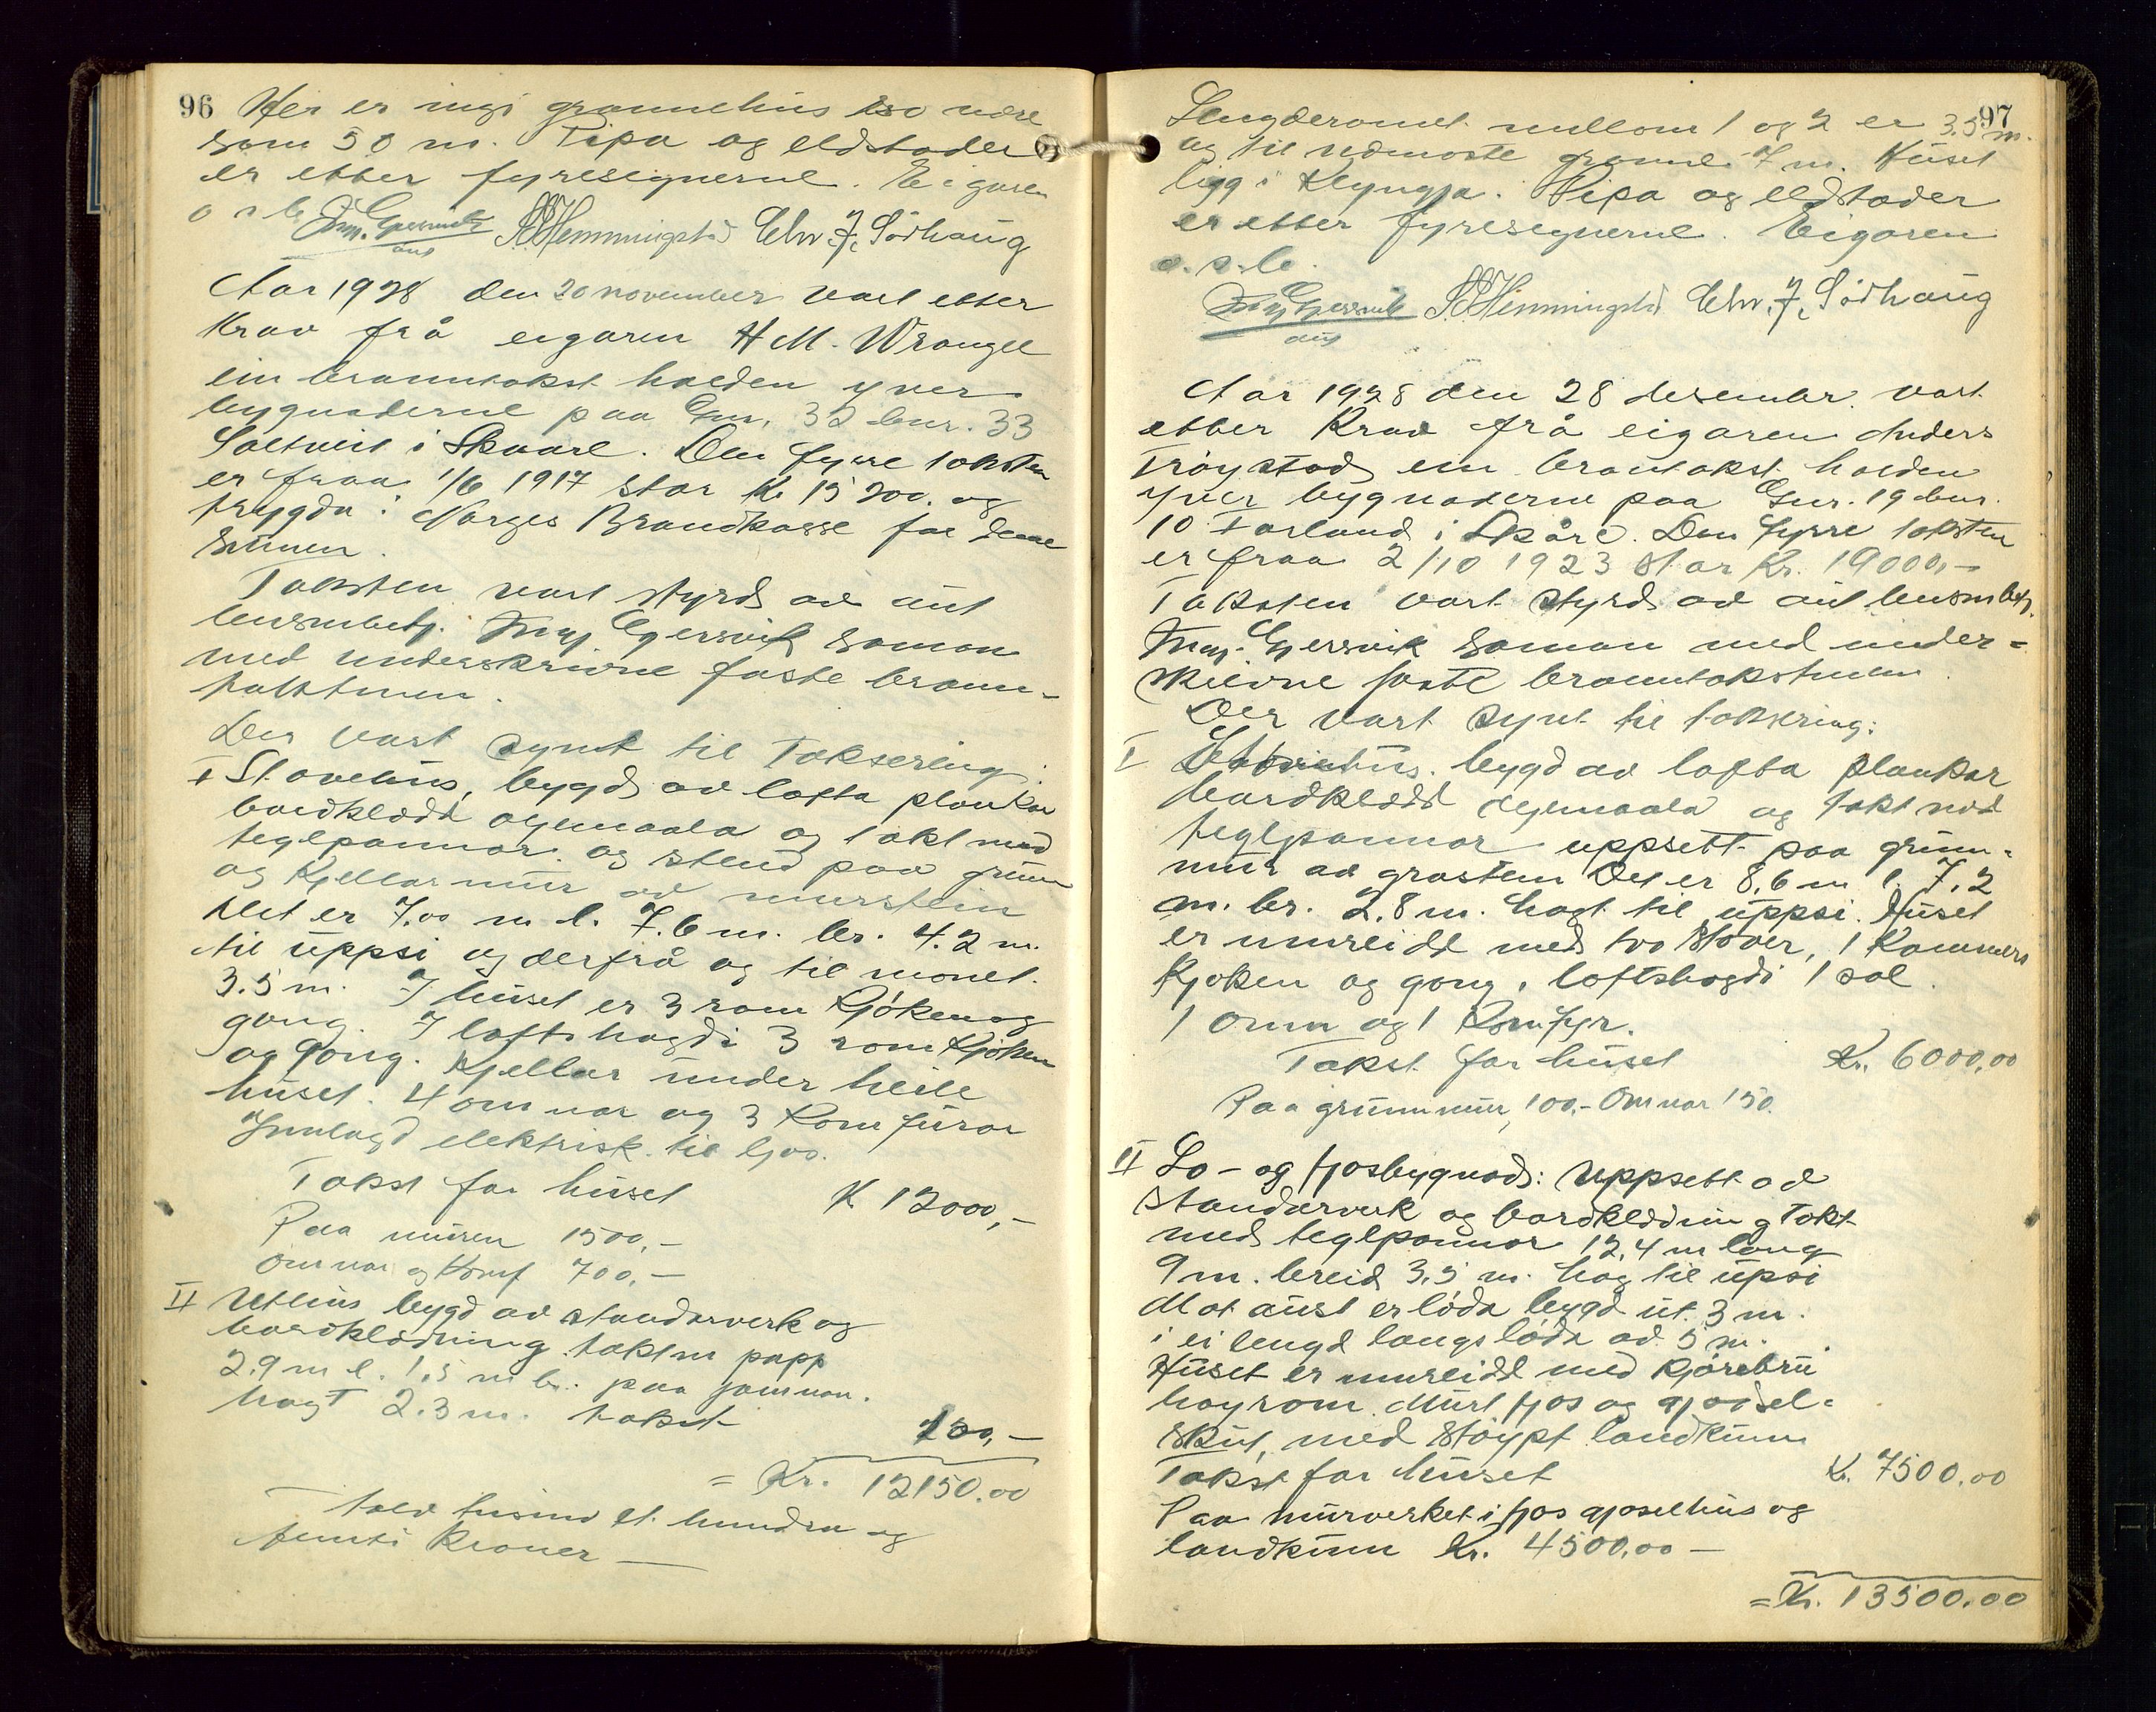 96
Her er ingi grannehus so nære
som 50 m. Pipa og eldstader
er etter fyresegnerne. Eigaren
o s b. Mag. Gjersvik S. Hemmingstad Chr. J. Sørhaug
aut
Aar 1928 den 20 november vart etter
krav frå eigaren H M. Wrangel
ein branntakst halden yver
bygnaderne paa Gnr. 32 bnr. 33
Saltveit i Skaare. Den fyrre taksten
er fraa 1/6 1917 stor Kr 15 200. og
trygda i Norges Brandkasse for denne
summen.
Taksten vart styrd av aut
lensmbetj. Mag Gjersvik saman
med underskrivne faste brann-
takstmen.
Der vart synt til Taksering:
I Stovehus, bygd av lafta plankar
bordklædd oljemaala og takt med
teglpannor og stend paa grunn
og Kjellarmur av murstein
Det er 7,00 m l. 7.6 m. br. 4.2 m.
til uppsi og derfrå og til mønet
3.5 m. I huset er 3 rom Kjøken og
gang. I loftshøgdi 3 rom Kjøken
og gang. Kjellar under heile
huset. 4 omnar og 3 Komfurar
Innlagd elektrisk til ljos.
Takst for huset K 12000,-
Paa muren 1500,-
Omnar og Komf 700,-
II Uthus bygd av standarverk og
bordklædning takt m papp
2.9 m l. 1,5 m br. paa jamnan.
høgt 2.3 m. takst
150,-
= Kr. 12150.00
tolv tusind et hundra og
femti Kroner —
97
Lengderomet millom 1 og 2 er 3.5 m.
og til nærmaste granne 7 m. Huset
ligg i Klyngja. Pipa og eldstader
er etter fyresegnerne. Eigaren
o. s. b.
Mag Gjersvik S. Hemmingstad Chr. J. Sørhaug
aut
Aar 1928 den 28 desembr. vart
etter Krav frå eigaren Anders
Frøystad ein branntakst halden
yver bygnaderne paa Gnr. 19 bnr.
10 Førland i Skåre. Den fyrre taksten
er fraa 2/10 1923 stor Kr. 19000,-
Taksten vart styrd av aut lensmbetj.
Mag. Gjersvik saman med under-
skrivne faste branntakstmen.
Der vart synt til taksering:
I Stovehus. bygd av lafta plankar
bordklædd oljemaala og takt med
teglpannor uppsett paa grunn-
mur av graastein Det er 8,6 m l. 7,2
m. br. 2.8 m. høgt til uppsi. Huset
er innreidd med tvo stover, 1 Kammers
Kjøken og gang, loftshøgdi 1 sal.
1 Omn og 1 Komfyr.
Takst for huset Kr. 6000,00
Paa grunnmur, 100,- Omnar 150.
II Lo- og fjosbygnad: Uppsett av
standarverk og bordklædning Takt
med teglpannor 12,4 m lang
9 m. breid 3,5 m. høg til upsi
Mot aust er løda bygd ut 3 m.
i ei lengd langs løda av 5 m.
Huset er innreidd med Kjørebru
høyrom. Murt fjos og gjødsel-
skut, med støypt landkum
Takst for huset Kr. 7500.00
Paa murverket i fjos gjøselhus og
landkum Kr. 4500,00 —
= Kr. 13500.00